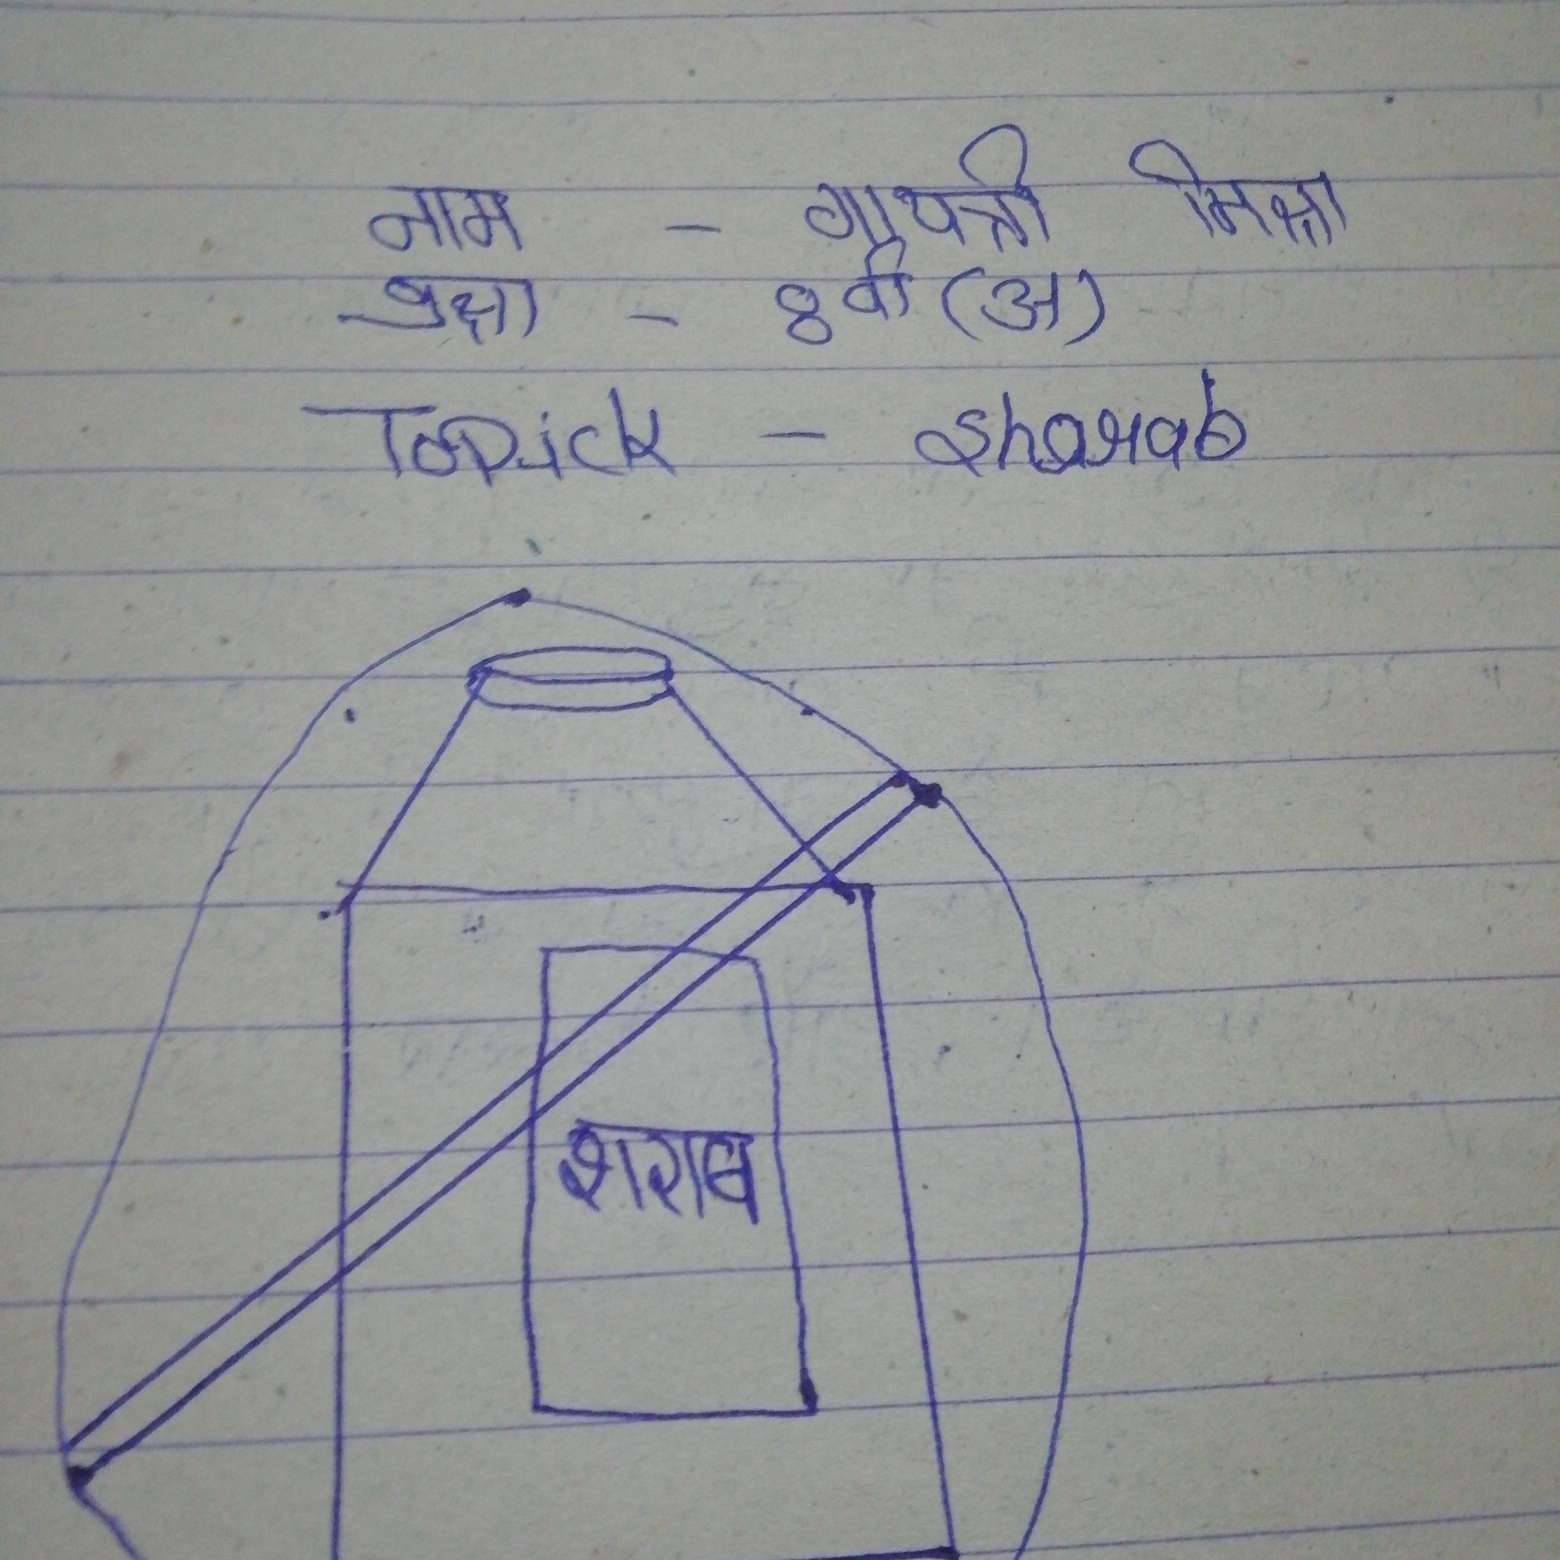 नाम - गायत्री मिश्रा
कक्षा - 8वी (अ)
Topick - sharab
शराब